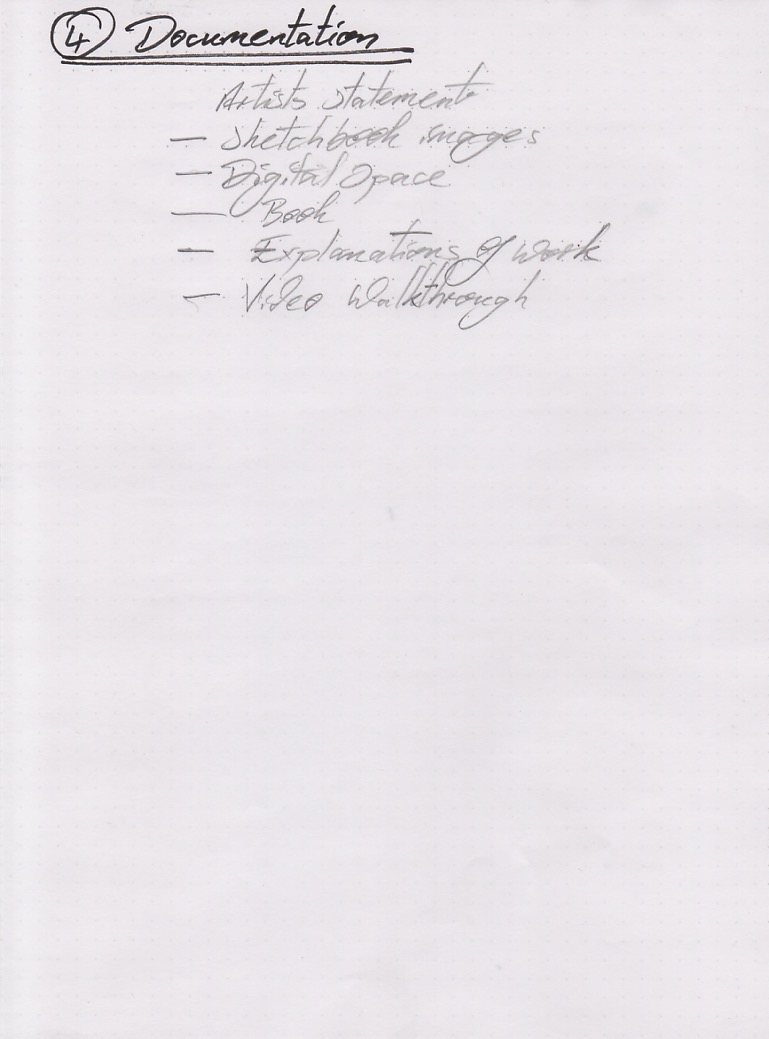 ④ Documentation
Artists Statement
— Sketchbook images
— Digital Space
— Book
— Explanations of work
— Video Walkthrough